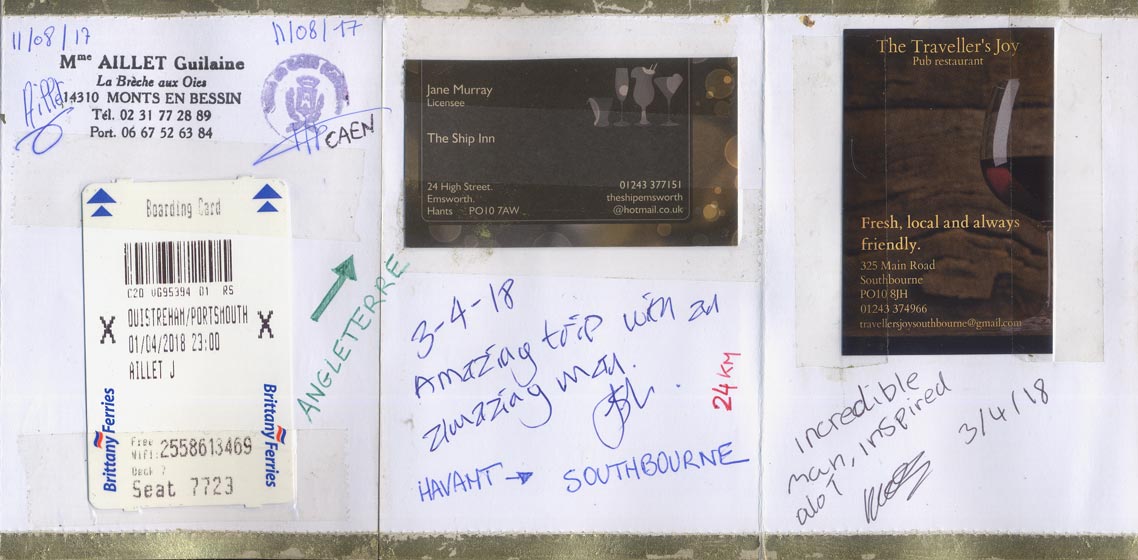 11/08/17
11/08/17
Mme AILLET Guilaine
La Brèche aux Oies
14310 MONTS EN BESSIN
Tél. 02 31 77 28 89
Port. 06 67 52 63 84
Aillet
CAEN
Boarding Card
C20 VG95394 01 RS
OUISTREHAM/PORTSMOUTH
01/04/2018 23:00
AILLET J
X
X
Brittany Ferries
Brittany Ferries
Free
Wifi: 2558613469
Deck 7
Seat 7723
ANGLETERRE
Jane Murray
Licensee
The Ship Inn
24 High Street.
Emsworth.
Hants PO10 7AW
01243 377151
theshipemsworth
@hotmail.co.uk
3-4-18
Amazing trip with an
amazing man.
24KM
HAVANT → SOUTHBOURNE
The Traveller's Joy
Pub restaurant
Fresh, local and always
friendly.
325 Main Road
Southbourne
PO10 8JH
01243 374966
travellersjoysouthbourne@gmail.com
incredible
man, inspired
alot
3/4/18